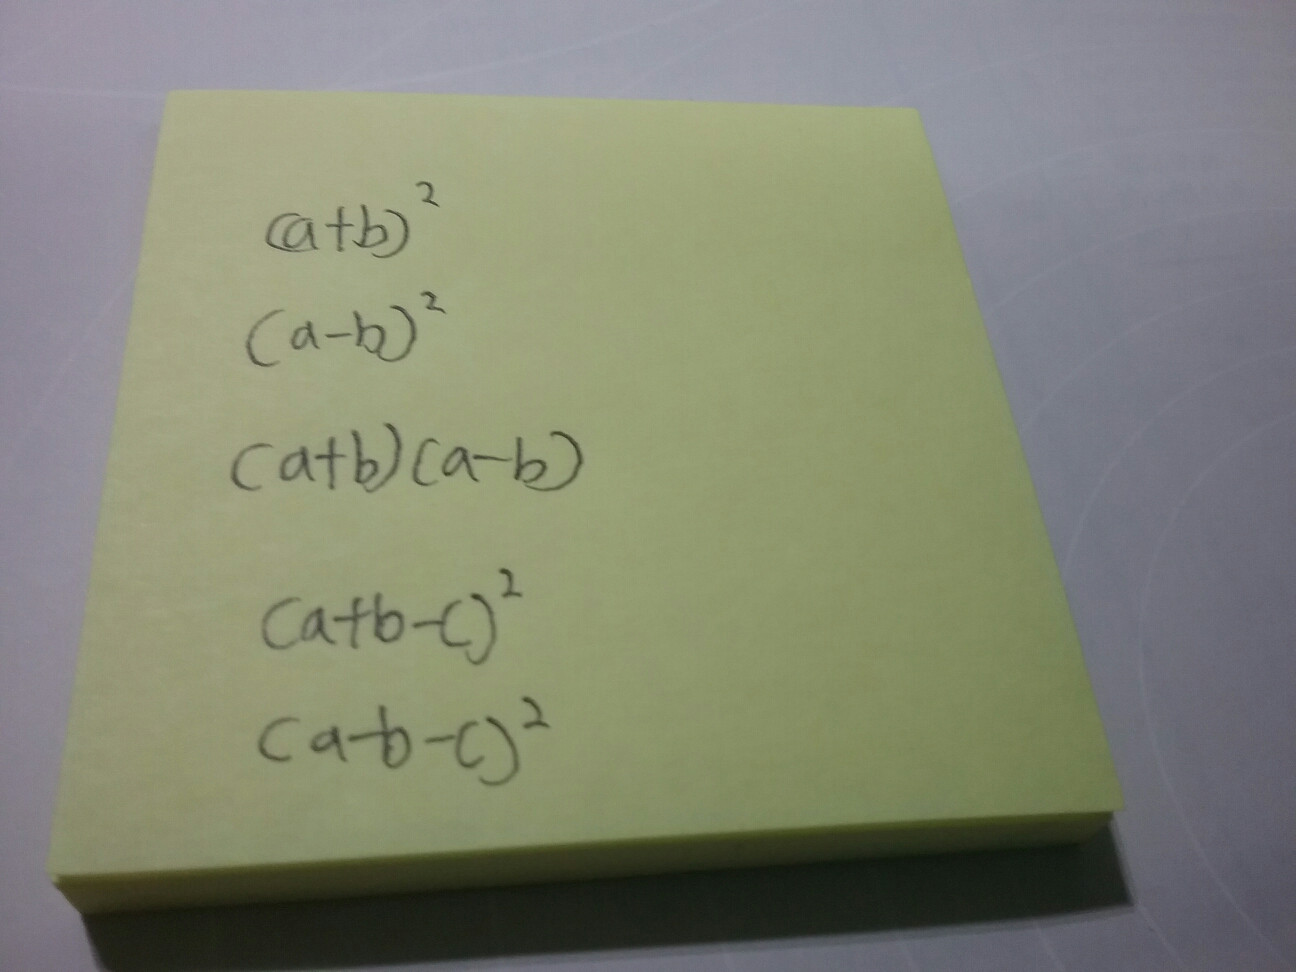 (a+b)²
(a-b)²
(a+b)(a-b)
(a+b-c)²
(a-b-c)²